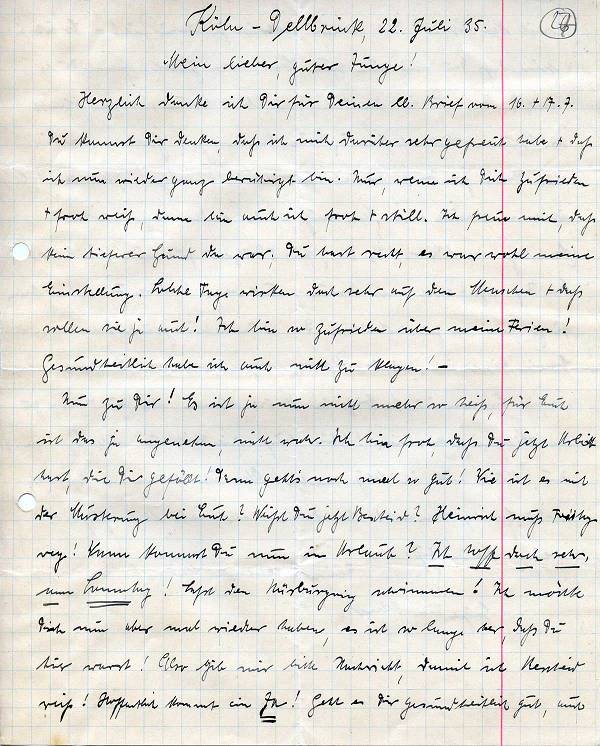 Köln – Dellbrück, 22. Juli 35.
Mein lieber, guter Junge!
Herzlich danke ich Dir für Deinen lb. Brief vom 16. + 17. 7.
Du kannst Dir denken, daß ich mich darüber sehr gefreut habe + daß
ich nun wieder ganz beruhigt bin. Nur, wenn ich Dich zufrieden
+ froh weiß, dann bin auch ich froh + still. Ich freue mich, daß
kein tieferer Grund da war. Du hast recht, es war wohl meine
Einstellung. Solche Tage wirken doch sehr auf den Menschen + daß
sollen sie ja auch! Ich bin so zufrieden über meine Ferien!
Gesundheitlich habe ich auch nicht zu klagen! –
Nun zu Dir! Es ist ja nun nicht mehr so heiß, für Euch
ist das ja angenehm, nicht wahr. Ich bin froh, daß Du jetzt Arbeit
hast, die Dir gefällt! Dann geht's noch mal so gut! Wie ist es mit
der Musterung bei Euch? Wißt Du jetzt Bescheid? Heinrich muß
weg! Wann kommst Du nun in Urlaub? Ich hoff doch sehr,
nun Sonntag! Laßt den Nürburgring schwimmen! Ich möchte
Dich nun aber mal wieder haben, es ist so lange her, daß Du
hier warst! Also gib mir bitte Nachricht, damit ich Bescheid
weiß! Hoffentlich kommt ein Ja! Geht es Dir gesundheitlich gut, auch